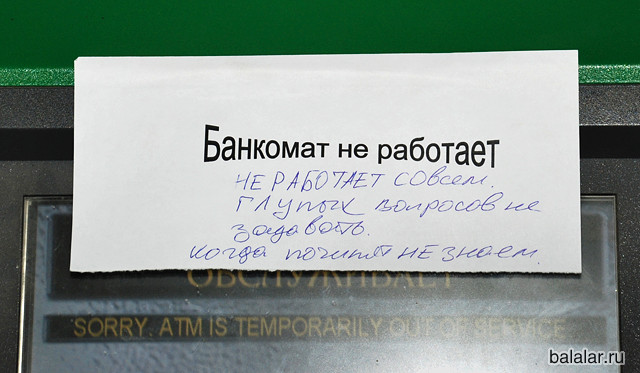 Банкомат не работает
НЕ РАБОТАЕТ СОВСЕМ.
ГЛУПЫХ вопросов не
задавать.
когда починят не знаем.
ОБСЛУЖИВАЕТ
SORRY. ATM IS TEMPORARILY OUT OF SERVICE.
balalar.ru